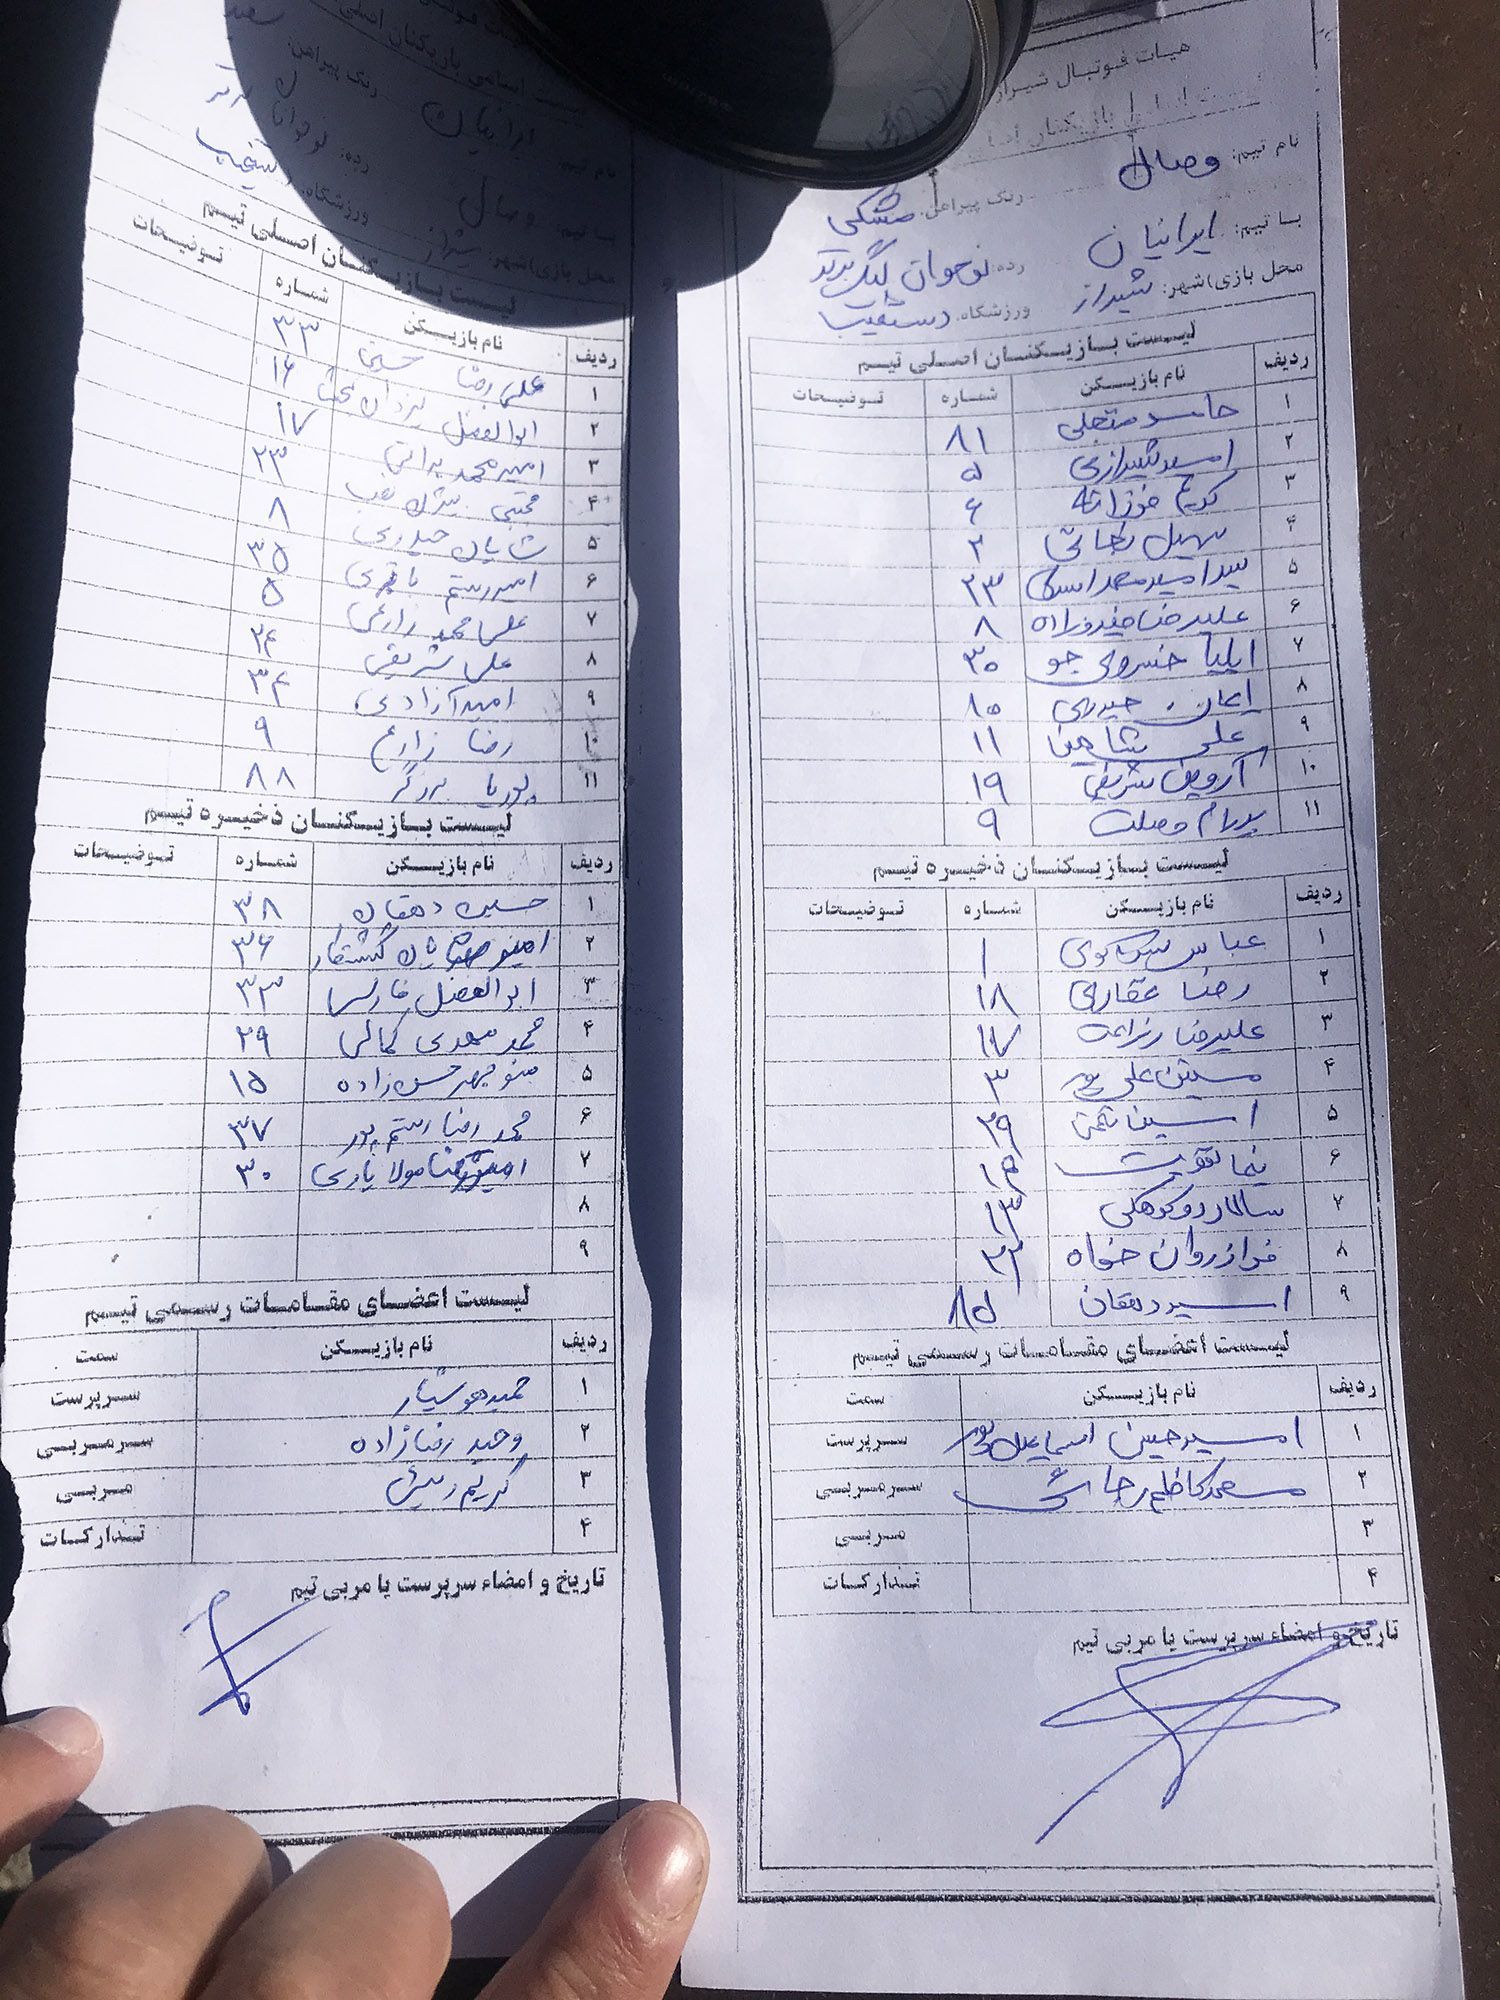 هیات فوتبال شیراز
لیست اسامی بازیکنان اصلی
نام تیم: وصال
رنگ پیراهن: مشکی
با تیم: ایرانیان
رده: نوجوان لیگ برتر
محل بازی)شهر: شیراز
ورزشگاه: دستغیب
لیست بازیکنان اصلی تیم
ردیف نام بازیکن شماره توضیحات
۱ حامد متجلی ۸۱
۲ امید شیرازی ۵
۳ کریم فرزانه ۶
۴ سهیل نجاتی ۲
۵ سید امیرمحمد ۲۳
۶ علیرضا ۸
۷ ایلیا خسروی جو ۳۰
۸ ایمان حیدری ۸۰
۹ علی شاهین ۱۱
۱۰ آروین شریفی ۱۹
۱۱ پدرام وصلت ۹
لیست بازیکنان ذخیره تیم
ردیف نام بازیکن شماره توضیحات
۱ عباس ۱
۲ رضا غفاری ۱۸
۳ علیرضا زراعت ۱۷
۴ متین علی پور ۳
۵ ۲۹
۶ نیما
۷ سالار دوکوهکی ۱۳
۸ فراز روان خواه
۹ امیر دهقان ۸۵
لیست اعضای مقامات رسمی تیم
ردیف نام بازیکن سمت
۱ امیرحسین اسماعیل پور سرپرست
۲ محمدکاظم سرمربی
۳ مربی
۴ تدارکات
تاریخ و امضاء سرپرست یا مربی تیم
لیست اسامی بازیکنان اصلی
رنگ پیراهن: سفید
نام تیم: ایرانیان
رده: نوجوانان
با تیم: وصال
ورزشگاه: دستغیب
محل بازی)شهر: شیراز
لیست بازیکنان اصلی تیم
ردیف نام بازیکن شماره توضیحات
۱ علی رضا حسینی ۳۳
۲ ابوالفضل یزدان ۱۶
۳ امیرمحمد براتی ۱۷
۴ مجتبی بیژن نسب ۲۳
۵ شایان حیدری ۸
۶ امیر رستم باقری ۳۵
۷ علی محمد زارعی ۵
۸ علی شریفی ۲۴
۹ امید آزادی ۳۴
۱۰ رضا زارع ۹
۱۱ پوریا برزگر ۸۸
لیست بازیکنان ذخیره تیم
ردیف نام بازیکن شماره توضیحات
۱ حسین دهقان ۳۸
۲ کشتکار ۳۶
۳ ابوالفضل پارسا ۳۲
۴ محمد مهدی کمالی ۲۹
۵ منوچهر حسن زاده ۱۵
۶ محمد رضا رستم پور ۳۷
۷ مولا یاری ۳۰
۸
۹
لیست اعضای مقامات رسمی تیم
ردیف نام بازیکن سمت
۱ حمید هوشیار سرپرست
۲ وحید رضازاده سرمربی
۳ کریم مربی
۴ تدارکات
تاریخ و امضاء سرپرست یا مربی تیم